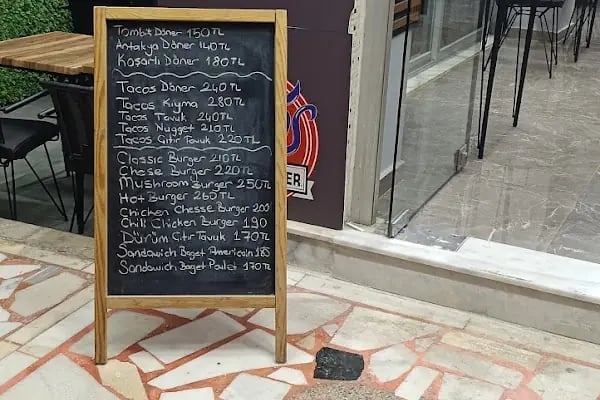 Tombik Döner 150TL
Antakya Döner 140TL
Kaşarlı Döner 180TL
Tacos Döner 240TL
Tacos Kıyma 280TL
Tacos Tavuk 240TL
Tacos Nugget 210TL
Tacos Çıtır Tavuk 220TL
Classic Burger 210TL
Chese Burger 220TL
Mushroom Burger 250TL
Hot Burger 260TL
Chicken Chesse Burger 200
Chili Chicken Burger 190
Dürüm Çıtır Tavuk 170TL
Sandowich Baget Americain 185
Sandowich Baget Poulet 170TL